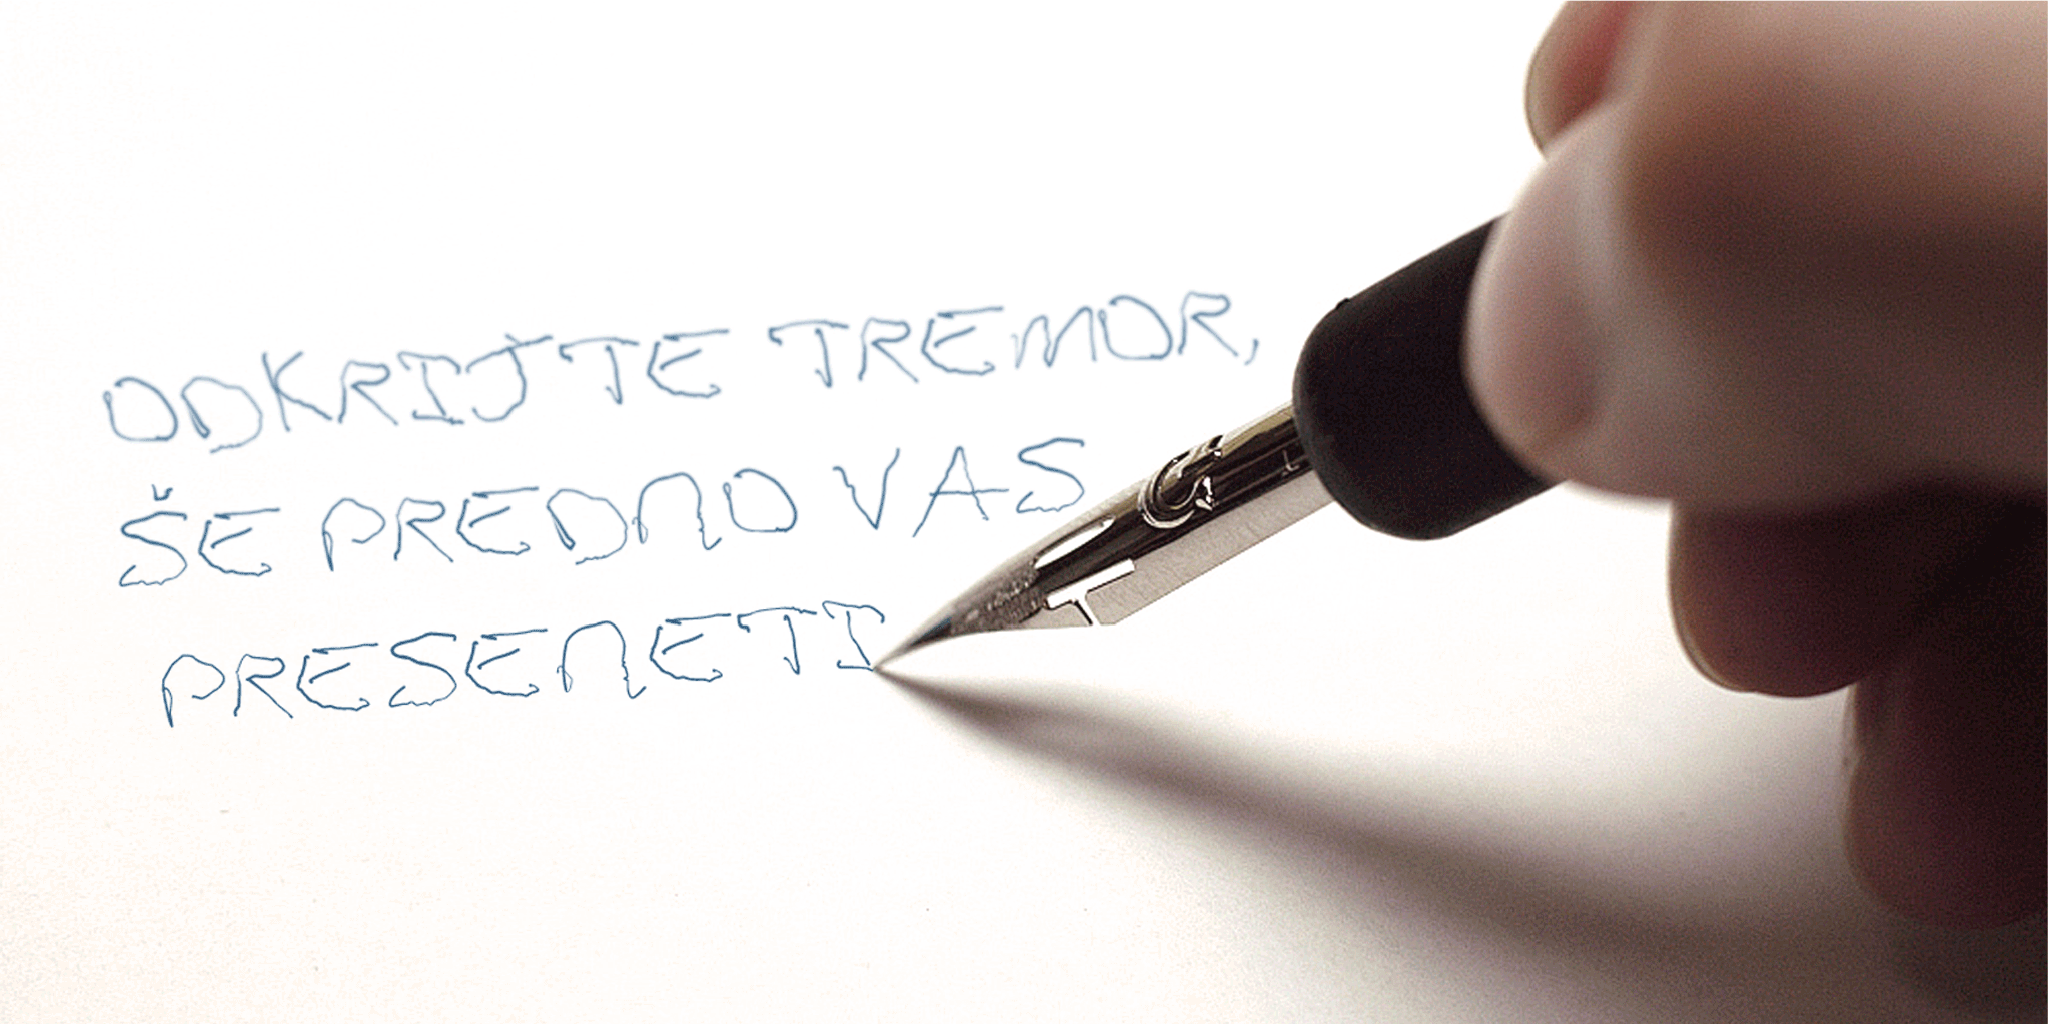 ODKRIJTE TREMOR,
ŠE PREDNO VAS
PRESENETI